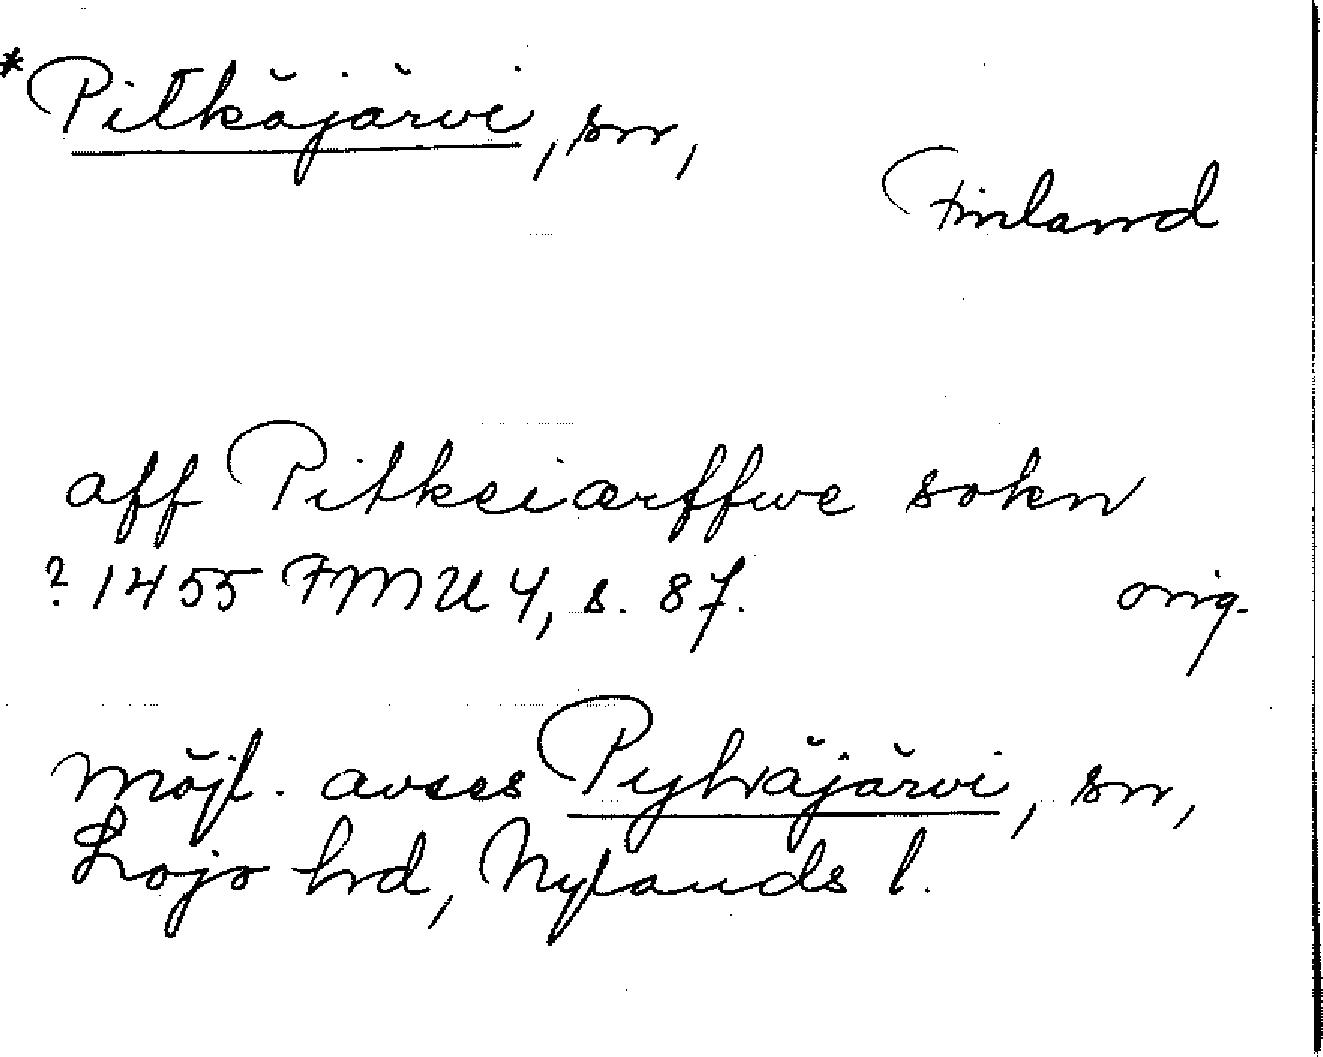 *Pitkäjärvi, sn,
Finland
aff Pitkeiærffwe sokn
? 1455 FMU 4, s. 87. orig.
möjl. avses Pyhäjärvi, sn,
Lojo hd, Nylands l.